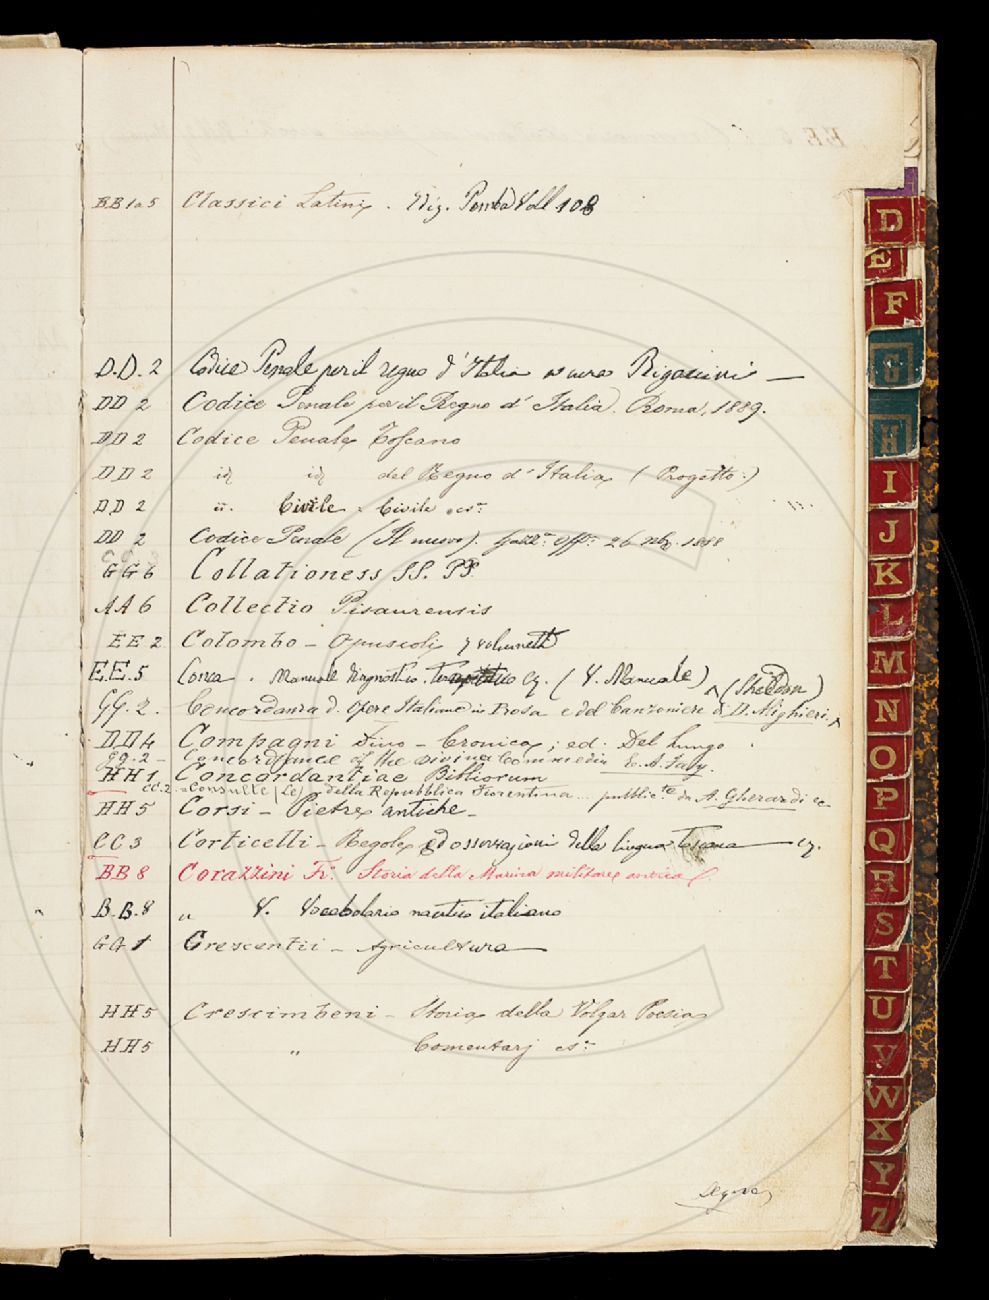 BB 1 a 5 Classici Latini. Ediz. Pomba Voll 108
D.D. 2 Codice Penale per il regno d'Italia Rigaccini —
DD 2 Codice Penale per il Regno d'Italia. Roma, 1889.
DD 2 Codice Penale Toscano
DD 2 id id del Regno d'Italia (Progetto.)
DD 2 Civile
DD 2 Codice Penale (Il nuovo). Gazz.ª Off.
GG 6 Collationess SS. PP.
AA 6 Collectio Pisaurensis
EE 2 Colombo — Opuscoli 7 volumetti
EE. 5 Conca. Manuale diagnostico (V. Manuale) (Sheldon)
GG. 2. Concordanza d. opere Italiane in Prosa e del Canzoniere di D. Alighieri.
DD 4 Compagni Dino — Cronica; ed. Del Lungo
GG. 2 — Concordance of the Divina Commedia E. A. Fay.
HH 1 Concordantiae Bibliorum
CC. 2 Consulte (Le) della Repubblica Fiorentina ... pubblic.te da A. Gherardi ec
HH 5 Corsi — Pietre antiche —
CC 3 Corticelli — Regole ed osservazioni della lingua Toscana —
BB 8 Corazzini F. Storia della Marina militare antica
B.B. 8 " V. Vocabolario nautico italiano
GG 1 Crescentii — Agricultura —
HH 5 Crescimbeni — Storia della Volgar Poesia
HH 5 " Comentarj
D
E
F
G
H
I
J
K
L
M
N
O
P
Q
R
S
T
U
V
W
X
Y
Z